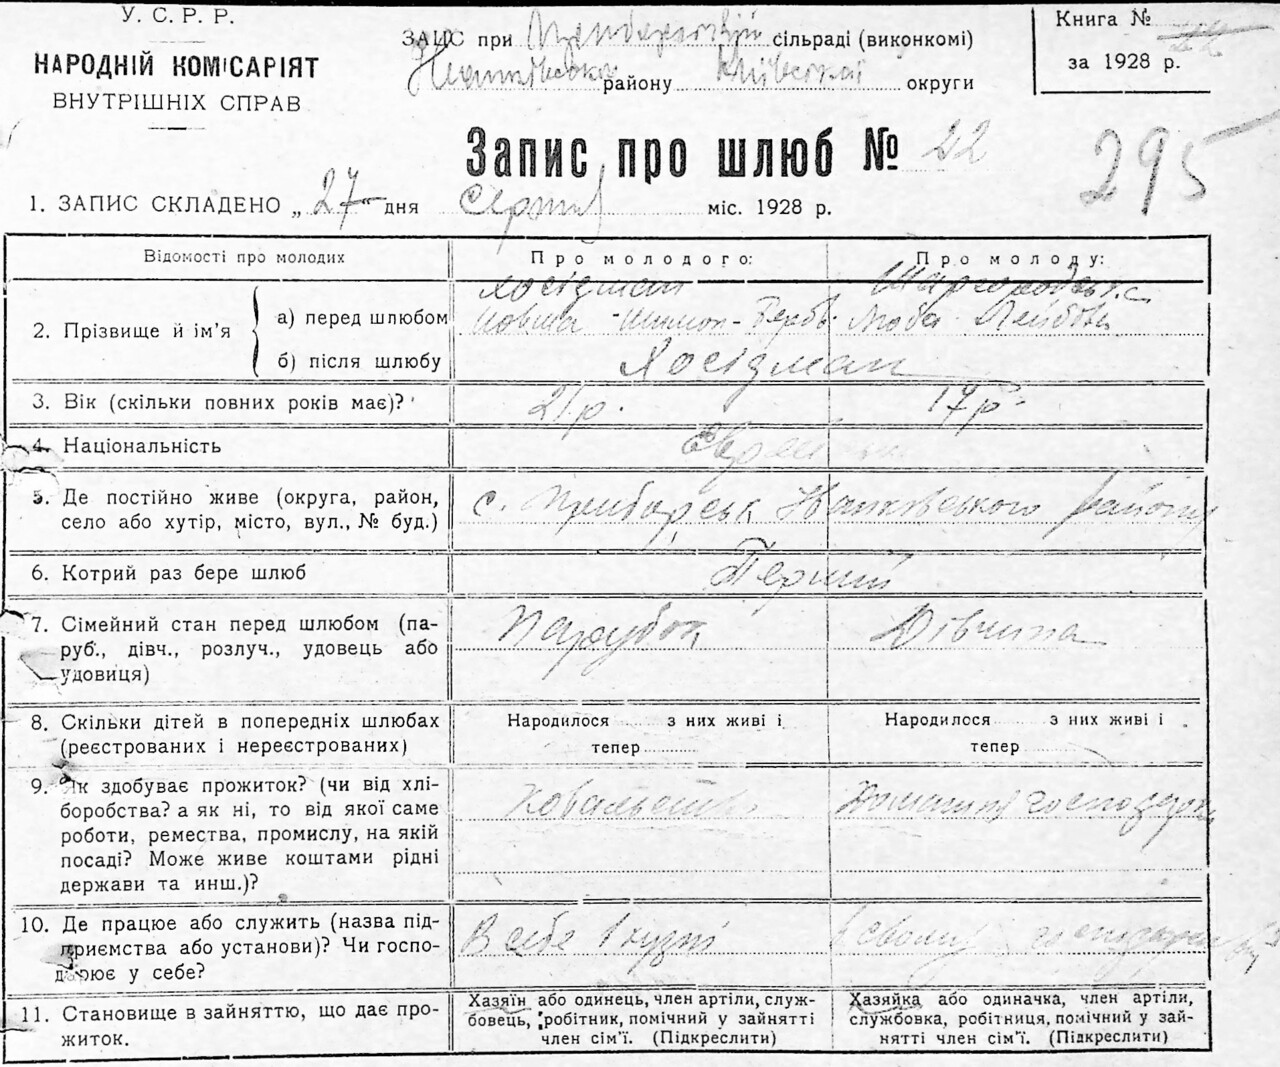 У. С. Р. Р.
НАРОДНІЙ КОМІСАРІЯТ
ВНУТРІШНІХ СПРАВ
ЗАПИС при сільраді (виконкомі)
району Київської округи
Книга № 22
за 1928 р.
Запис про шлюб № 22
295
1. ЗАПИС СКЛАДЕНО „ 27 дня Серпня міс. 1928 р.
Відомості про молодих
Про молодого:
Про молоду:
2. Прізвище й ім’я
а) перед шлюбом
Хосідман
Шимон-
Люба Лейбовн
б) після шлюбу
Хосідман
3. Вік (скільки повних років має)?
21 р.
17 р.
4. Національність
5. Де постійно живе (округа, район,
село або хутір, місто, вул., № буд.)
с. району
6. Котрий раз бере шлюб
Перший
7. Сімейний стан перед шлюбом (па-
руб., дівч., розлуч., удовець або
удовиця)
Парубок
Дівчина
8. Скільки дітей в попередніх шлюбах
(реєстрованих і нереєстрованих)
Народилося з них живі і
тепер
Народилося з них живі і
тепер
9. Як здобуває прожиток? (чи від хлі-
боробства? а як ні, то від якої саме
роботи, ремества, промислу, на якій
посаді? Може живе коштами рідні
держави та инш.)?
Ковальство
10. Де працює або служить (назва під-
приємства або установи)? Чи госпо-
дарює у себе?
В себе в кузні
11. Становище в зайняттю, що дає про-
житок.
Хазяїн або одинець, член артіли, служ-
бовець, робітник, помічний у зайнятті
член сім’ї. (Підкреслити)
Хазяйка або одиначка, член артіли,
службовка, робітниця, помічний у зай-
нятті член сім’ї. (Підкреслити)